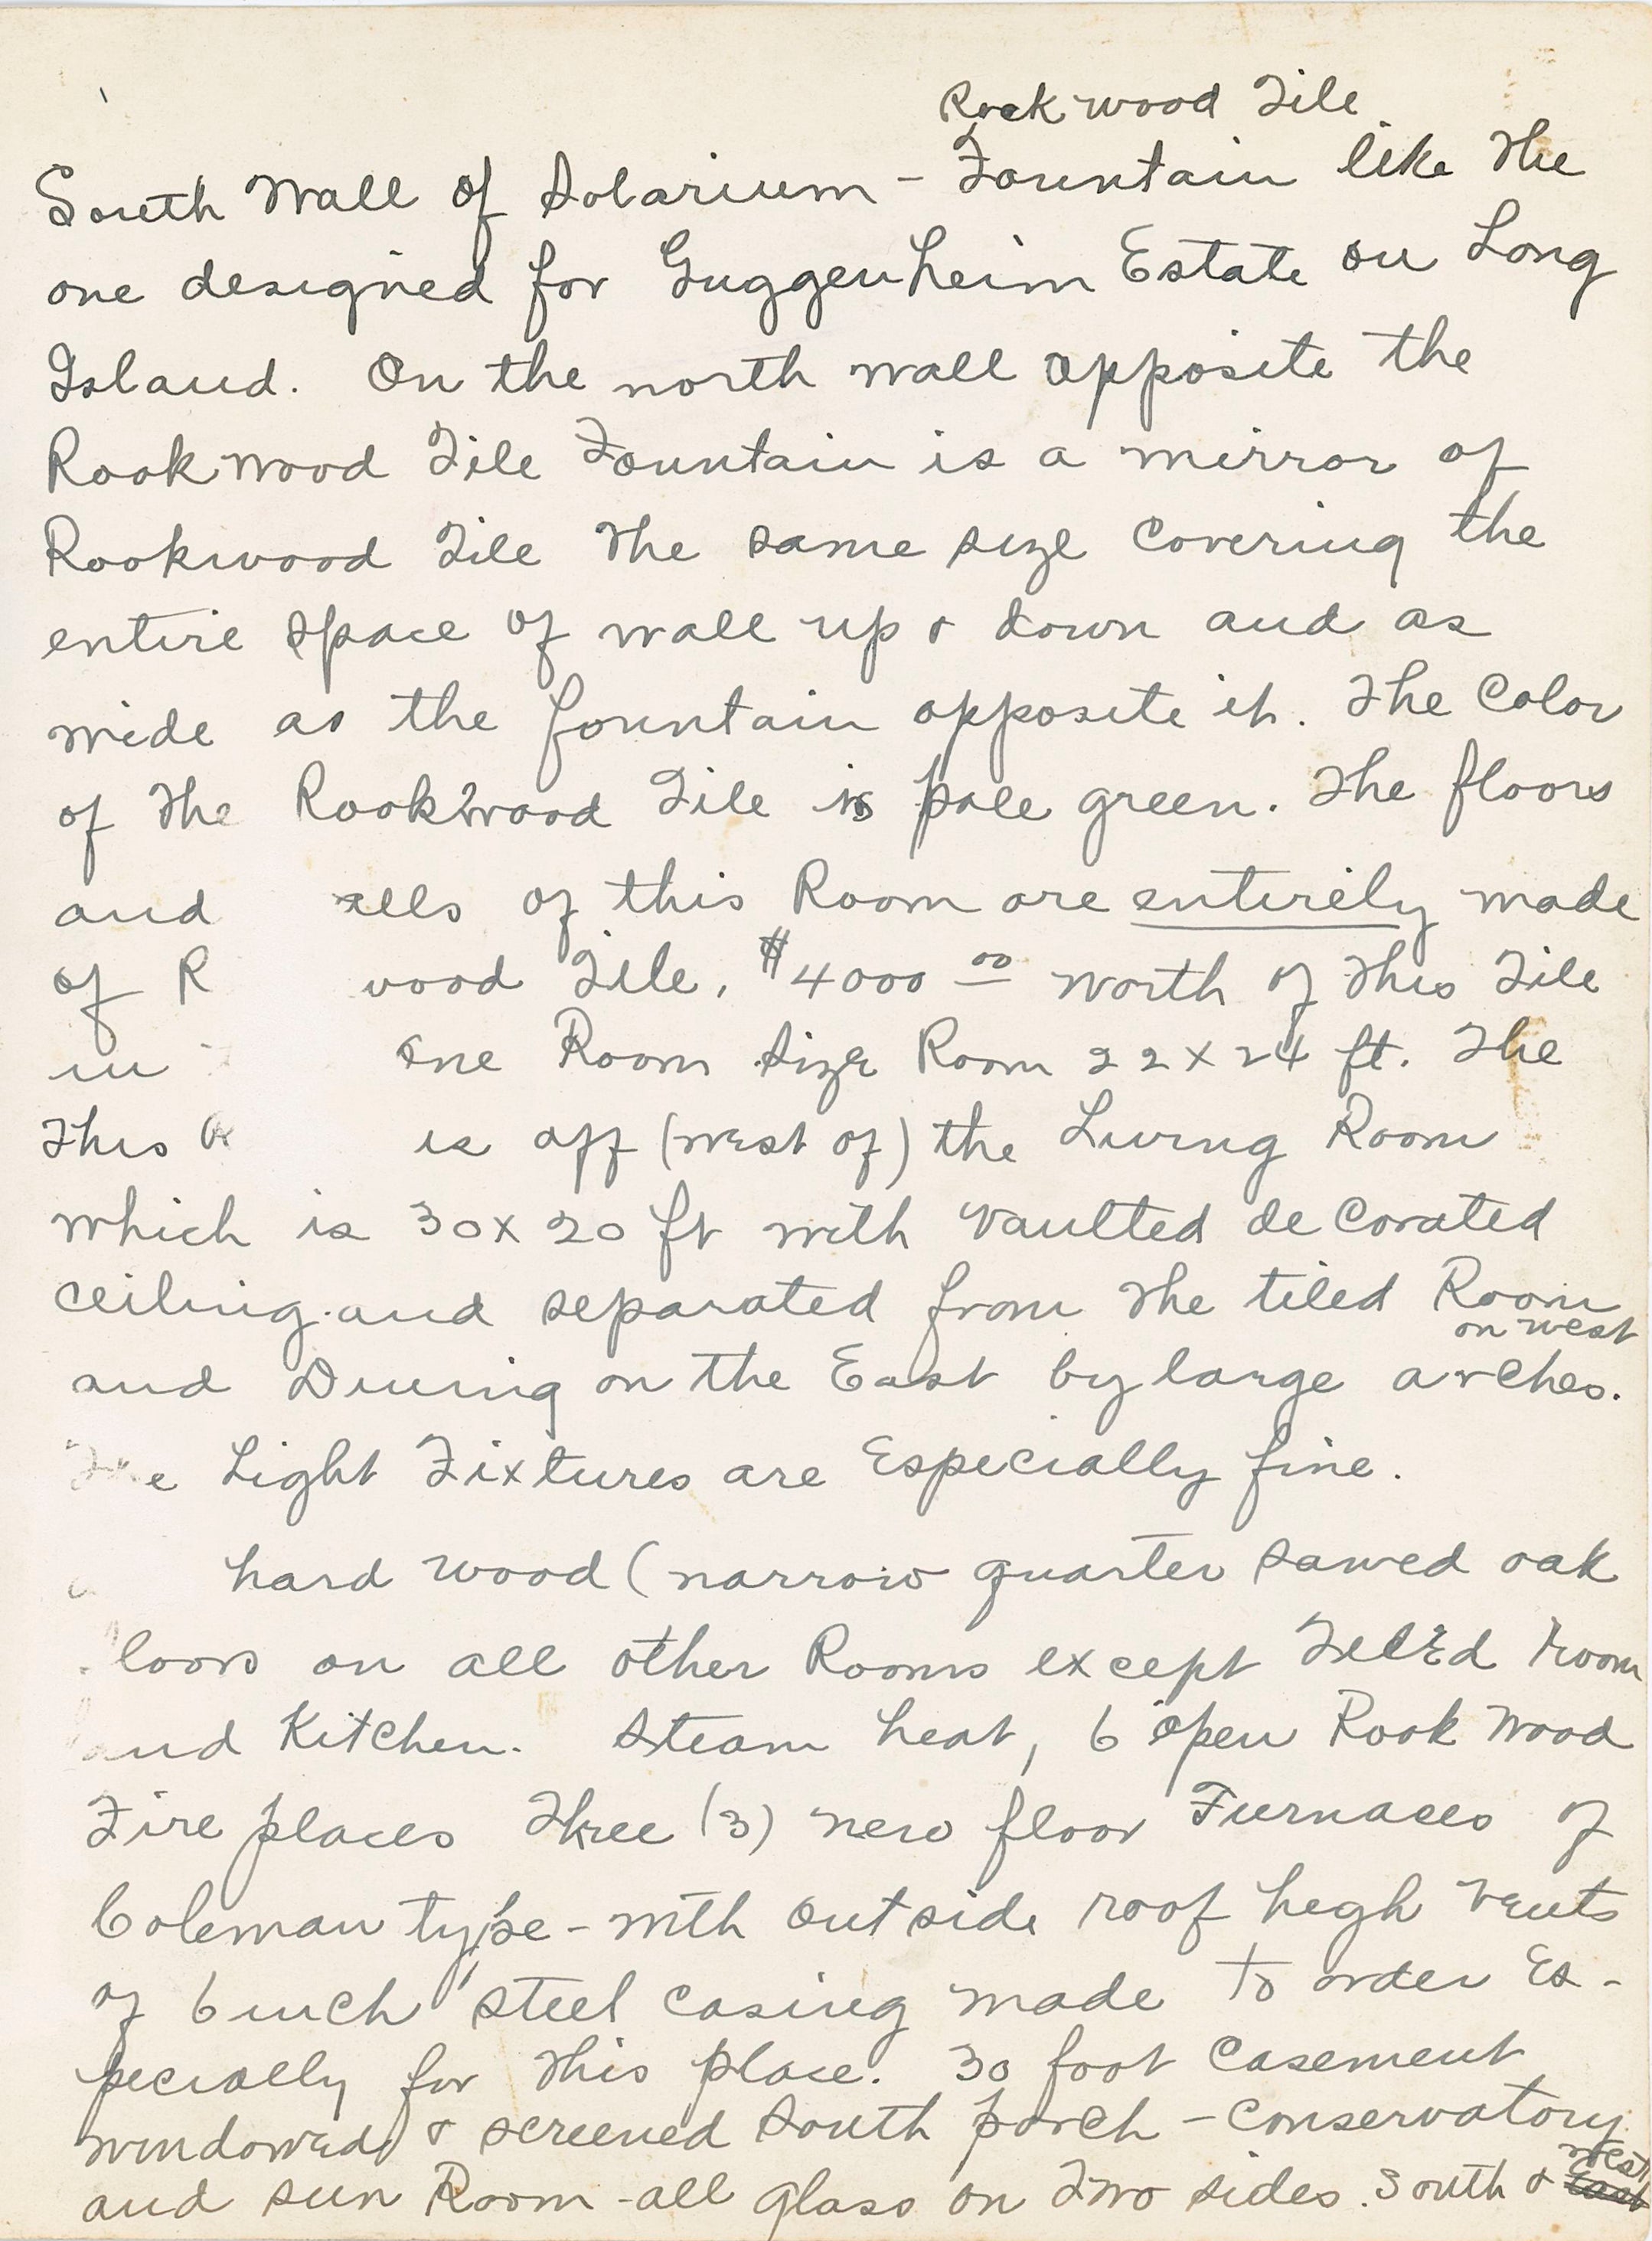 Rookwood Tile
South Wall of Solarium - Fountain like the
one designed for Guggenheim Estate on Long
Island. On the north wall opposite the
Rookwood Tile Fountain is a mirror of
Rookwood Tile the same size covering the
entire space of wall up & down and as
wide as the fountain opposite it. The Color
of the Rookwood Tile is pale green. The floors
and alls of this Room are entirely made
of R wood Tile. $4000 00 worth of this Tile
in one Room Size Room 22 x 24 ft. The
This R is off (west of) the Living Room
which is 30 x 20 ft with vaulted decorated
ceiling and separated from the tiled Room
on west
and Dining on the East by large arches.
The Light Fixtures are Especially fine.
hard wood (narrow quarter sawed oak
loors on all other Rooms except TilEd room
and Kitchen. Steam heat, 6 open Rook Wood
Fire places Three (3) new floor Furnaces of
Coleman type - with outside roof high vents
of 6 inch steel casing made to order Es-
pecially for this place. 30 foot Casement
windowed & screened South porch - Conservatory
west
and sun Room - all glass on two sides. South & East